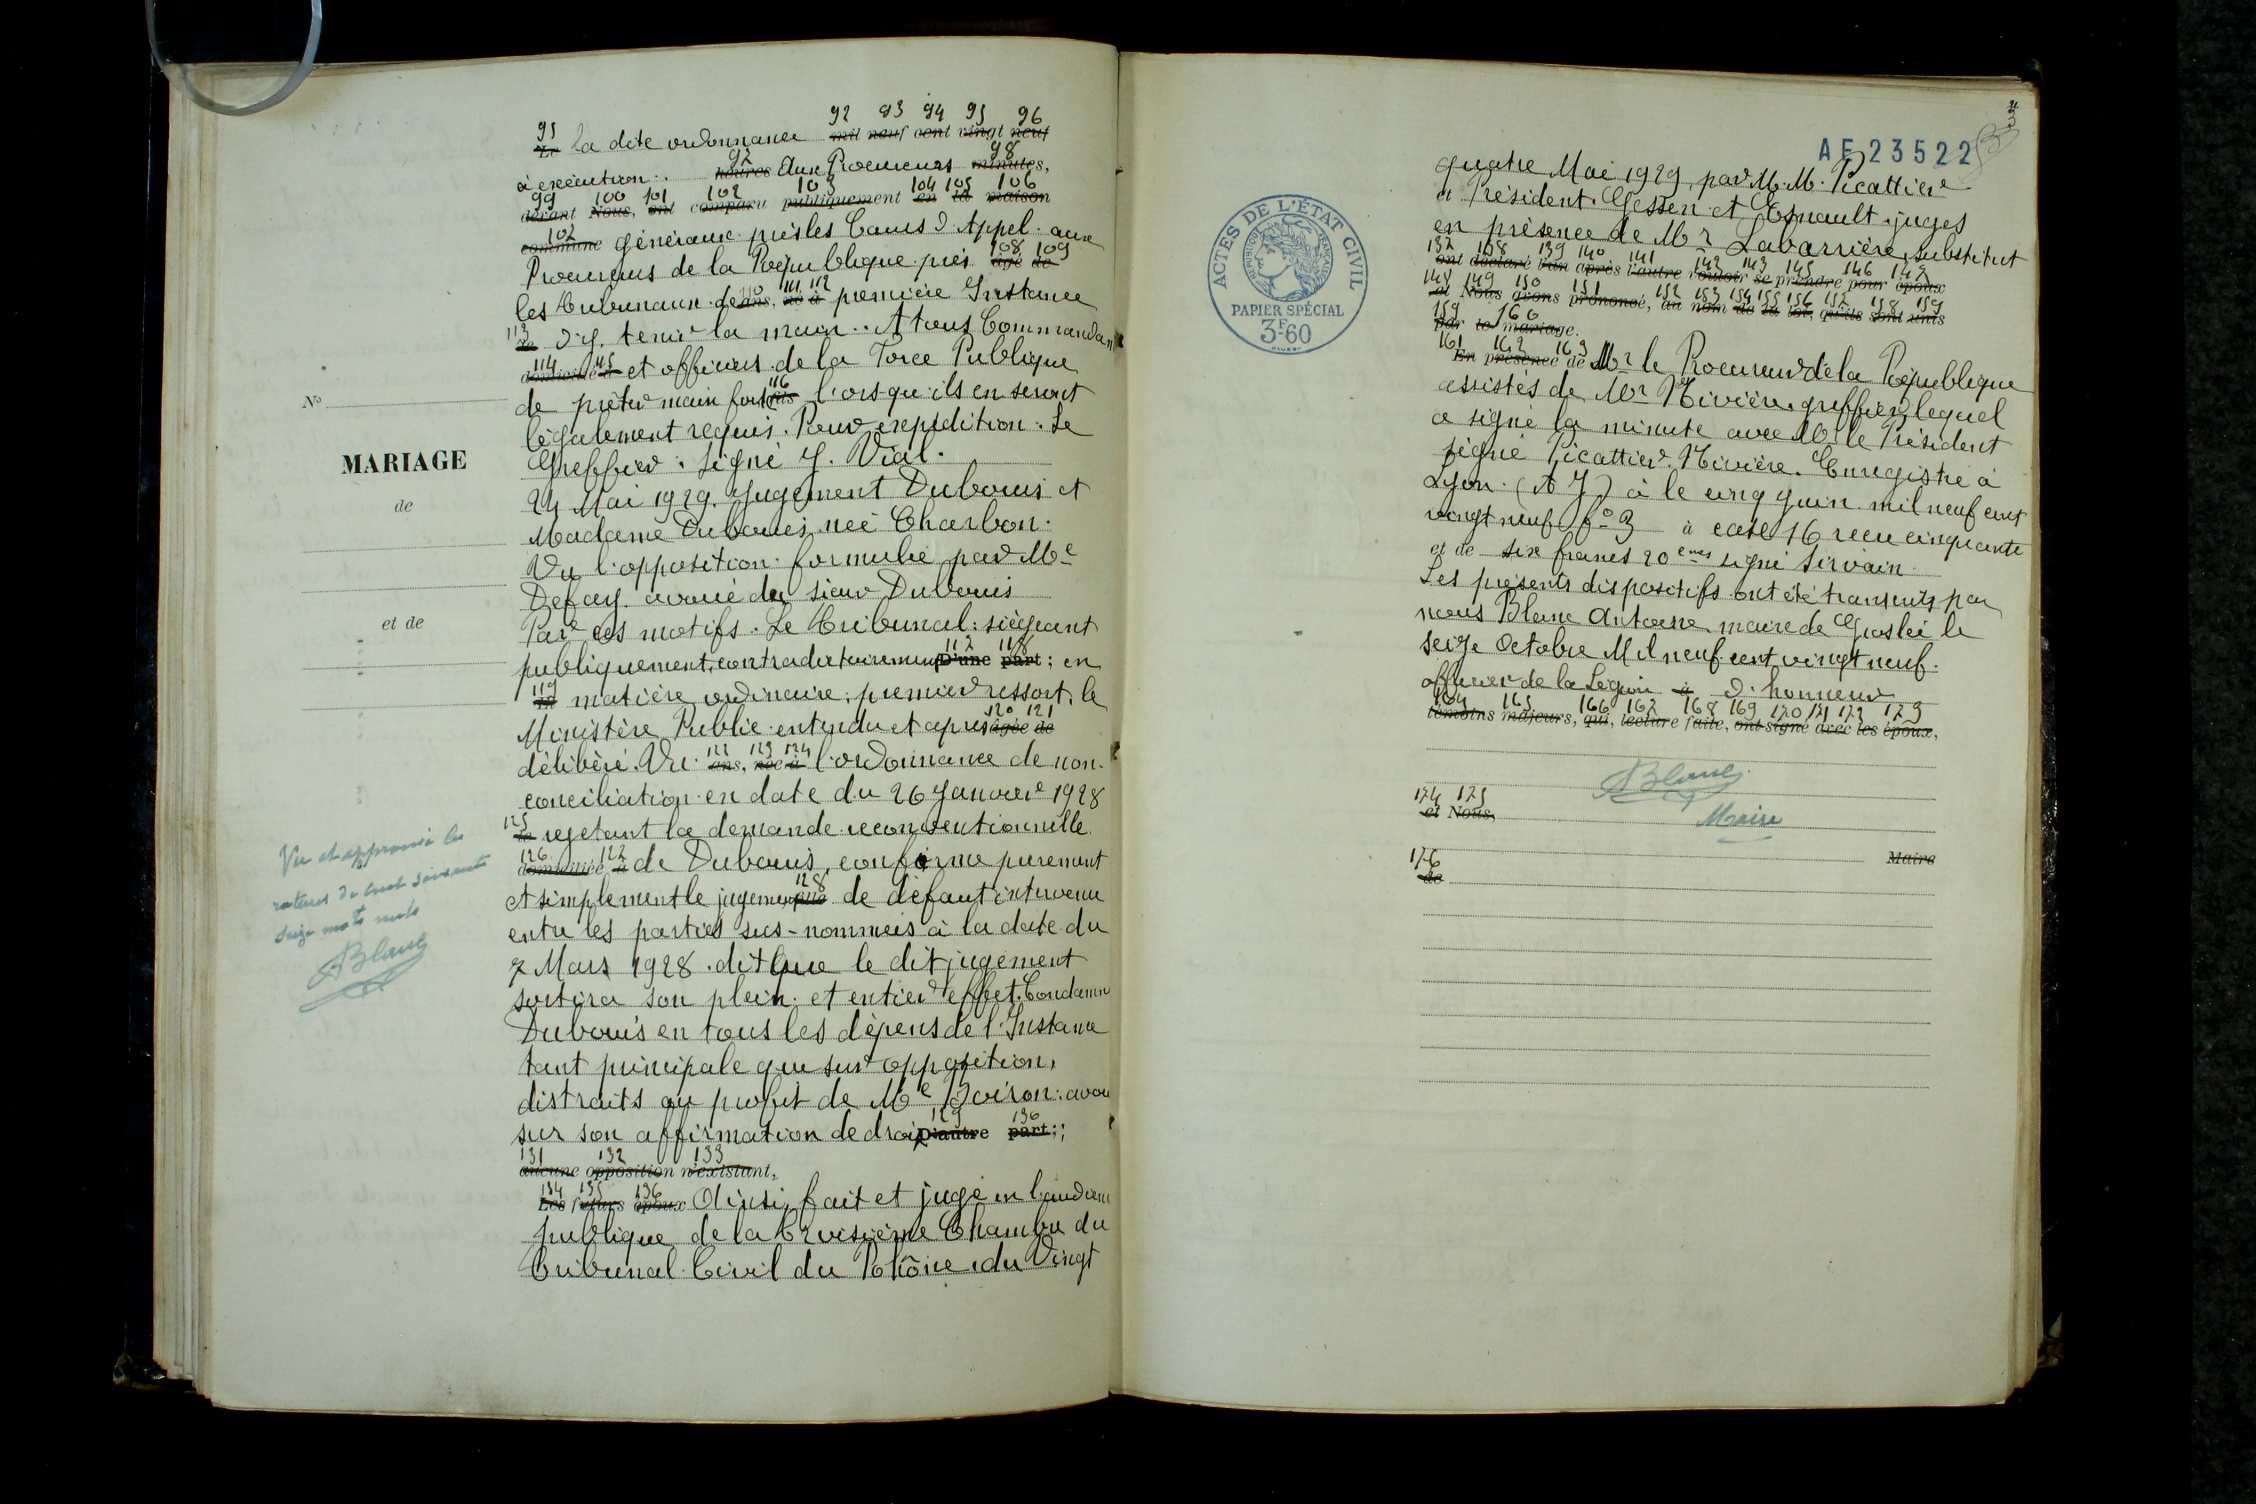 91 92 93 94 95 96
Le la dite ordonnance mil neuf cent vingt neuf
97 98
à exécution. heures Aux Procureurs minutes,
99 100 101 102 103 104 105 106
devant Nous, ont comparu publiquement en la maison
107
commune généraux près les Cours d'Appel. aux
108 109
Procureurs de la République près âgé de
110 111 112
les Tribunaux de ans, né à première Instance
113
le d'y tenir la main.. A tous Commandan
114 115
domicilié à et officiers de la Force Publique
116
de prêter main forte fils lorsqu'ils en seront
légalement requis. Pour expédition. Le
Greffier. signé J. Vial.
24 Mai 1929. Jugement Dubouis et
Madame Dubouis née Charbon.
Vu l'opposition formulée par Me
Defay avoué du sieur Dubouis
Par ces motifs. Le Tribunal: siégeant
117 118
publiquement, contradictoirement D'une part; en
119
Et matière ordinaire, premier ressort, le
120 121
Ministère Public entendu et après âgée de
122 123 124
délibéré. Vu ans, née à l'ordonnance de non-
conciliation en date du 26 Janvier 1928
125
le rejetant la demande reconventionnelle
126 127
domiciliée à de Dubouis, confirme purement
128
et simplement le jugement fille de défaut intervenu
entre les parties sus-nommées à la date du
7 Mars 1928. dit que le dit jugement
sortira son plein et entier effet. Condamne
Dubouis en tous les dépens de l'Instance
tant principale que sur opposition,
distraits au profit de Me Boiron. avou
129 130
sur son affirmation de droit D'autre part;;
131 132 133
aucune opposition n'existant,
134 135 136
Les futurs époux Ainsi fait et jugé en l'audience
publique de la troisième Chambre du
Tribunal Civil du Rhône du Vingt
No
MARIAGE
de
et de
Vu et approuvé les
ratures de cent soixante
seize mots nuls
Blanc
AE 23522
ACTES DE L'ÉTAT CIVIL
RÉPUBLIQUE FRANÇAISE
PAPIER SPÉCIAL
3F60
quatre Mai 1929, par M.M. Picattier
et Président. Gessen et Esnault juges
en présence de Mr Labarrière, substitut
137 138 139 140 141 142 143 145 146 147
ont déclaré l'un après l'autre vouloir se prendre pour époux
148 149 150 151 152 153 154 155 156 157 158 159
et Nous avons prononcé, au nom de la loi, qu'ils sont unis
159 160
par le mariage.
161 162 163
En présence de Mr le Procureur de la République
assistés de Mr Rivière, greffier lequel
a signé la minute avec M. le Président
signé Picattier. Rivière. Enregistré à
Lyon. (A J) à le cinq juin mil neuf cent
vingt neuf fo 3 à case 16 recu cinquante
et de six francs 20 emes signé Sirvain
Les présents dispositifs ont été transcrits par
nous Blanc Antoine maire de Groslée le
seize Octobre Mil neuf cent vingt neuf.
officier de la Légion à d'honneur
164 165 166 167 168 169 170 171 172 173
témoins majeurs, qui, lecture faite, ont signé avec les époux,
Blanc
174 175
et Nous,
Maire
176
Maire
de